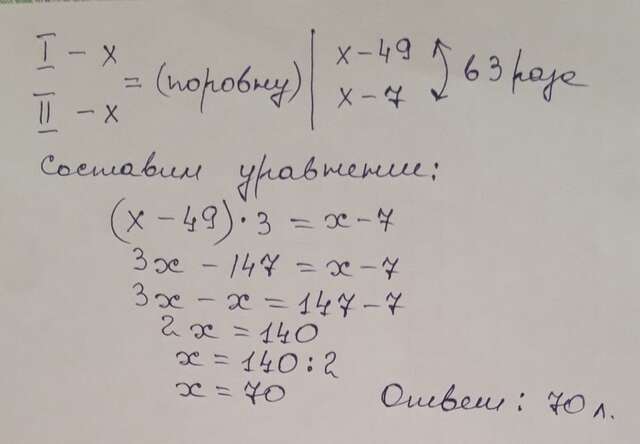 I – x = (поровну) | x – 49 в 3 раза
II – x x – 7
Составим уравнение:
(x – 49) · 3 = x – 7
3x – 147 = x – 7
3x – x = 147 – 7
2x = 140
x = 140 : 2
x = 70 Ответ: 70 л.